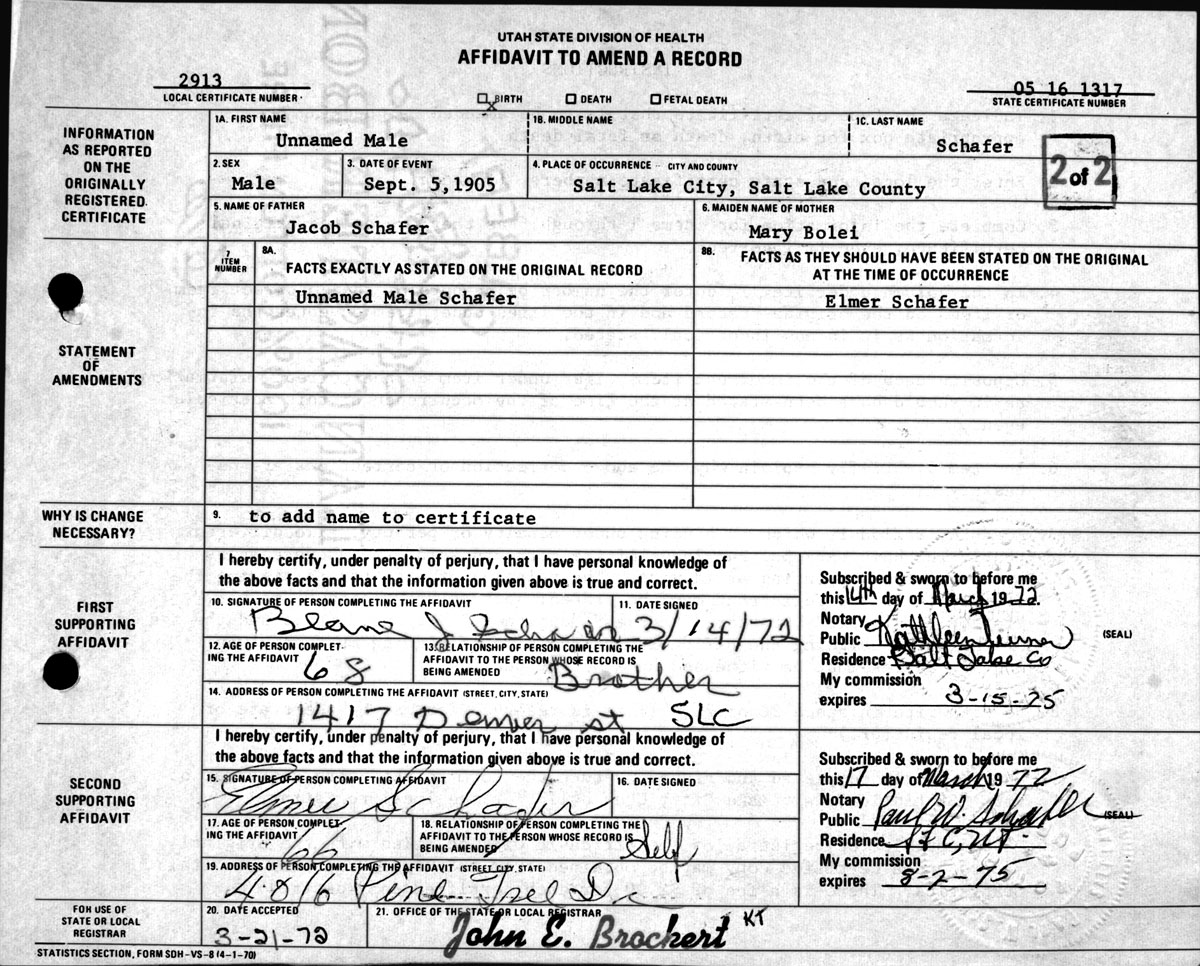 UTAH STATE DIVISION OF HEALTH
AFFIDAVIT TO AMEND A RECORD
2913
LOCAL CERTIFICATE NUMBER
X BIRTH DEATH FETAL DEATH
05 16 1317
STATE CERTIFICATE NUMBER
INFORMATION
AS REPORTED
ON THE
ORIGINALLY
REGISTERED
CERTIFICATE
1A. FIRST NAME
Unnamed Male
1B. MIDDLE NAME
1C. LAST NAME
Schafer
2 of 2
2. SEX
Male
3. DATE OF EVENT
Sept. 5,1905
4. PLACE OF OCCURRENCE - CITY AND COUNTY
Salt Lake City, Salt Lake County
5. NAME OF FATHER
Jacob Schafer
6. MAIDEN NAME OF MOTHER
Mary Bolei
STATEMENT
OF
AMENDMENTS
7
ITEM
NUMBER
8A.
FACTS EXACTLY AS STATED ON THE ORIGINAL RECORD
8B.
FACTS AS THEY SHOULD HAVE BEEN STATED ON THE ORIGINAL
AT THE TIME OF OCCURRENCE
Unnamed Male Schafer
Elmer Schafer
WHY IS CHANGE
NECESSARY?
9. to add name to certificate
FIRST
SUPPORTING
AFFIDAVIT
I hereby certify, under penalty of perjury, that I have personal knowledge of
the above facts and that the information given above is true and correct.
10. SIGNATURE OF PERSON COMPLETING THE AFFIDAVIT
J
11. DATE SIGNED
3/14/72
12. AGE OF PERSON COMPLET-
ING THE AFFIDAVIT
68
13. RELATIONSHIP OF PERSON COMPLETING THE
AFFIDAVIT TO THE PERSON WHOSE RECORD IS
BEING AMENDED
Brother
14. ADDRESS OF PERSON COMPLETING THE AFFIDAVIT (STREET, CITY, STATE)
1417 Denver st SLC
Subscribed & sworn to before me
this 14th day of March 19 72.
Notary
Public Kathleen
(SEAL)
Residence Salt Lake Co
My commission
expires 3-15-75
SECOND
SUPPORTING
AFFIDAVIT
I hereby certify, under penalty of perjury, that I have personal knowledge of
the above facts and that the information given above is true and correct.
15. SIGNATURE OF PERSON COMPLETING AFFIDAVIT
Elmer Schafer
16. DATE SIGNED
17. AGE OF PERSON COMPLET-
ING THE AFFIDAVIT
66
18. RELATIONSHIP OF PERSON COMPLETING THE
AFFIDAVIT TO THE PERSON WHOSE RECORD IS
BEING AMENDED
Self
19. ADDRESS OF PERSON COMPLETING THE AFFIDAVIT (STREET, CITY, STATE)
Dr
Subscribed & sworn to before me
this 17 day of March 19 72
Notary
Public Paul W.
(SEAL)
Residence
My commission
expires 8-2-75
FOR USE OF
STATE OR LOCAL
REGISTRAR
20. DATE ACCEPTED
3-21-72
21. OFFICE OF THE STATE OR LOCAL REGISTRAR
John E. Brockert KT
STATISTICS SECTION, FORM SDH-VS-8 (4-1-70)